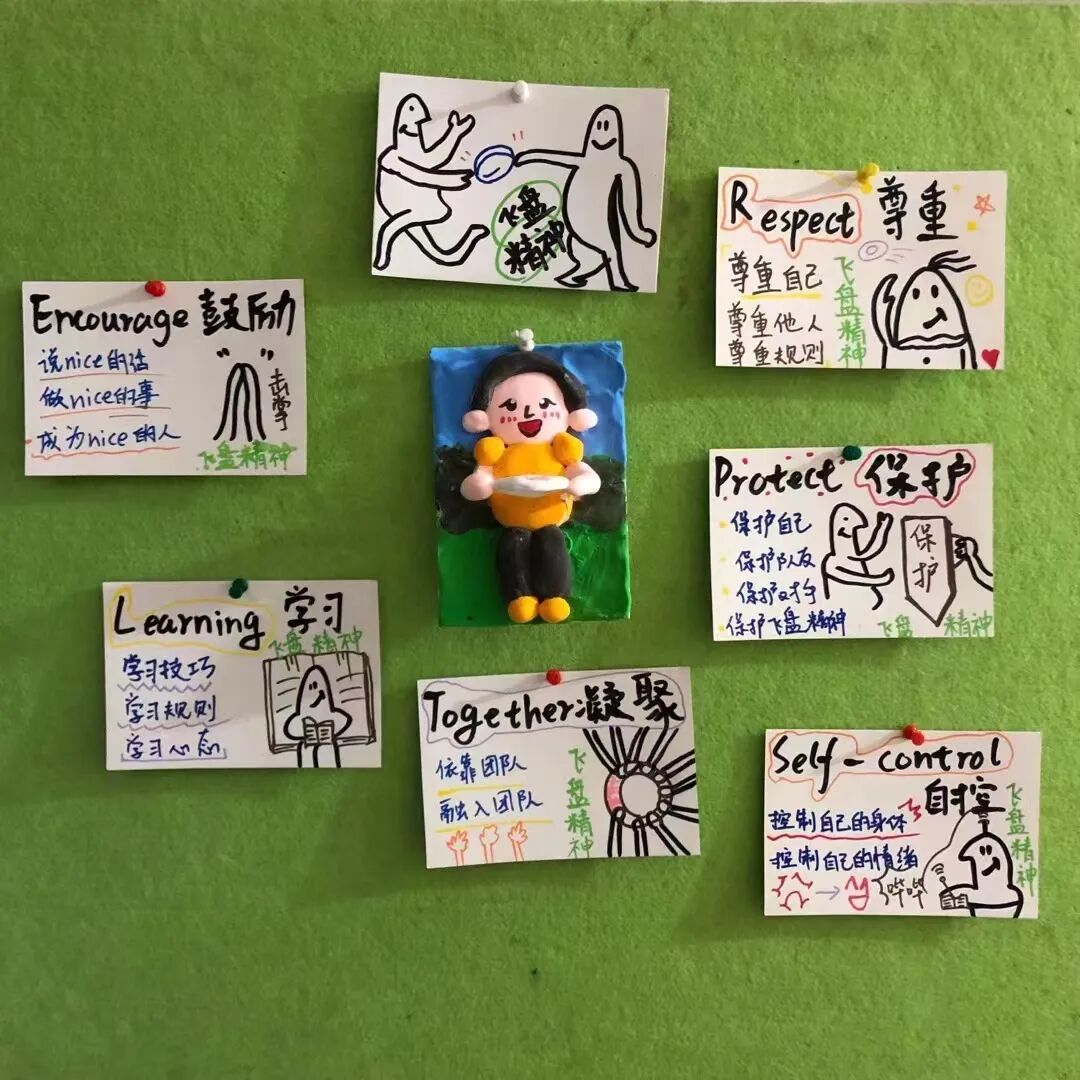 飞盘
精神
Respect 尊重
尊重自己
尊重他人
尊重规则
飞盘精神
Encourage 鼓励
说nice的话
做nice的事
成为nice的人
“ ”
击掌
飞盘精神
Protect 保护
保护自己
保护队友
保护对手
保护飞盘精神
保护
飞盘 精神
Learning 学习
飞盘精神
学习技巧
学习规则
学习心态
Together 凝聚
依靠团队
融入团队
飞盘精神
Self-control
自控
控制自己的身体
控制自己的情绪
哔哔
飞盘精神